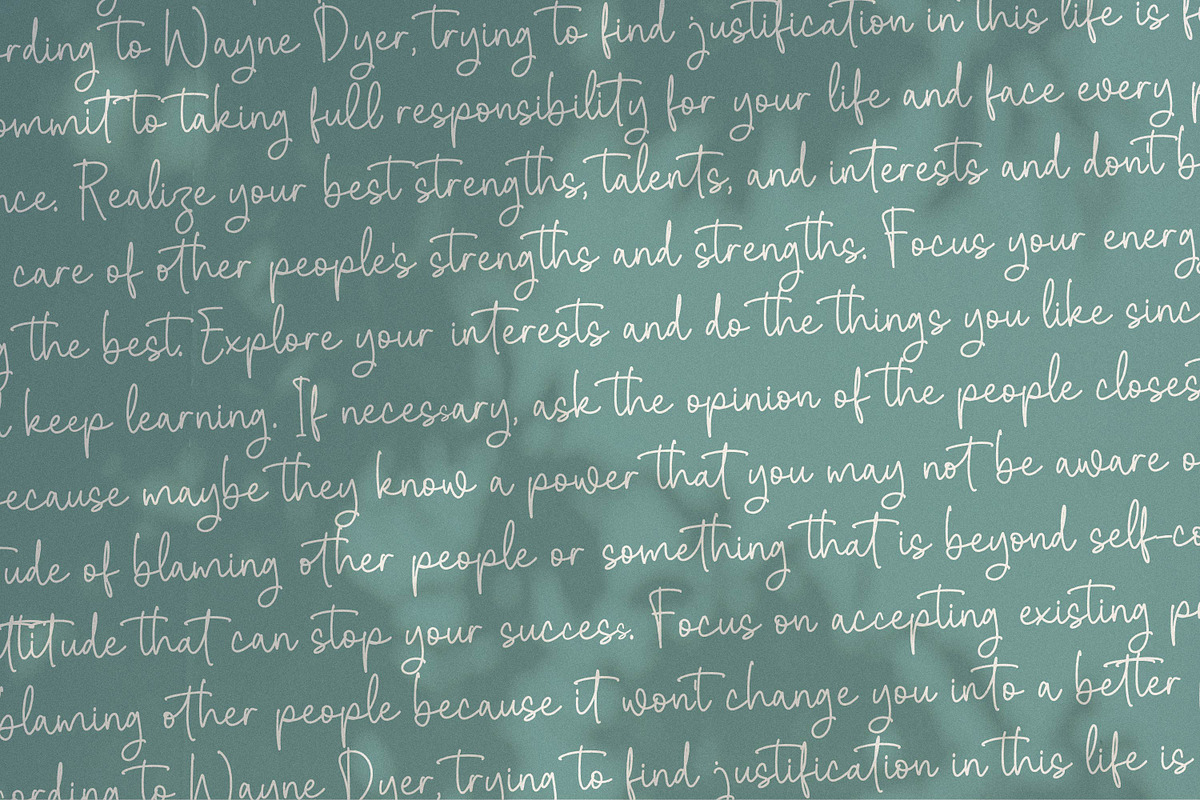 rding to Wayne Dyer, trying to find justification in this life is f
ommit to taking full responsibility for your life and face every p
nce. Realize your best strengths, talents, and interests and don't b
care of other people's strengths and strengths. Focus your energ
g the best. Explore your interests and do the things you like sinc
l keep learning. If necessary, ask the opinion of the people closest
ecause maybe they know a power that you may not be aware o
tude of blaming other people or something that is beyond self-co
ttitude that can stop your success. Focus on accepting existing p
blaming other people because it won't change you into a better
cording to Wayne Dyer, trying to find justification in this life is